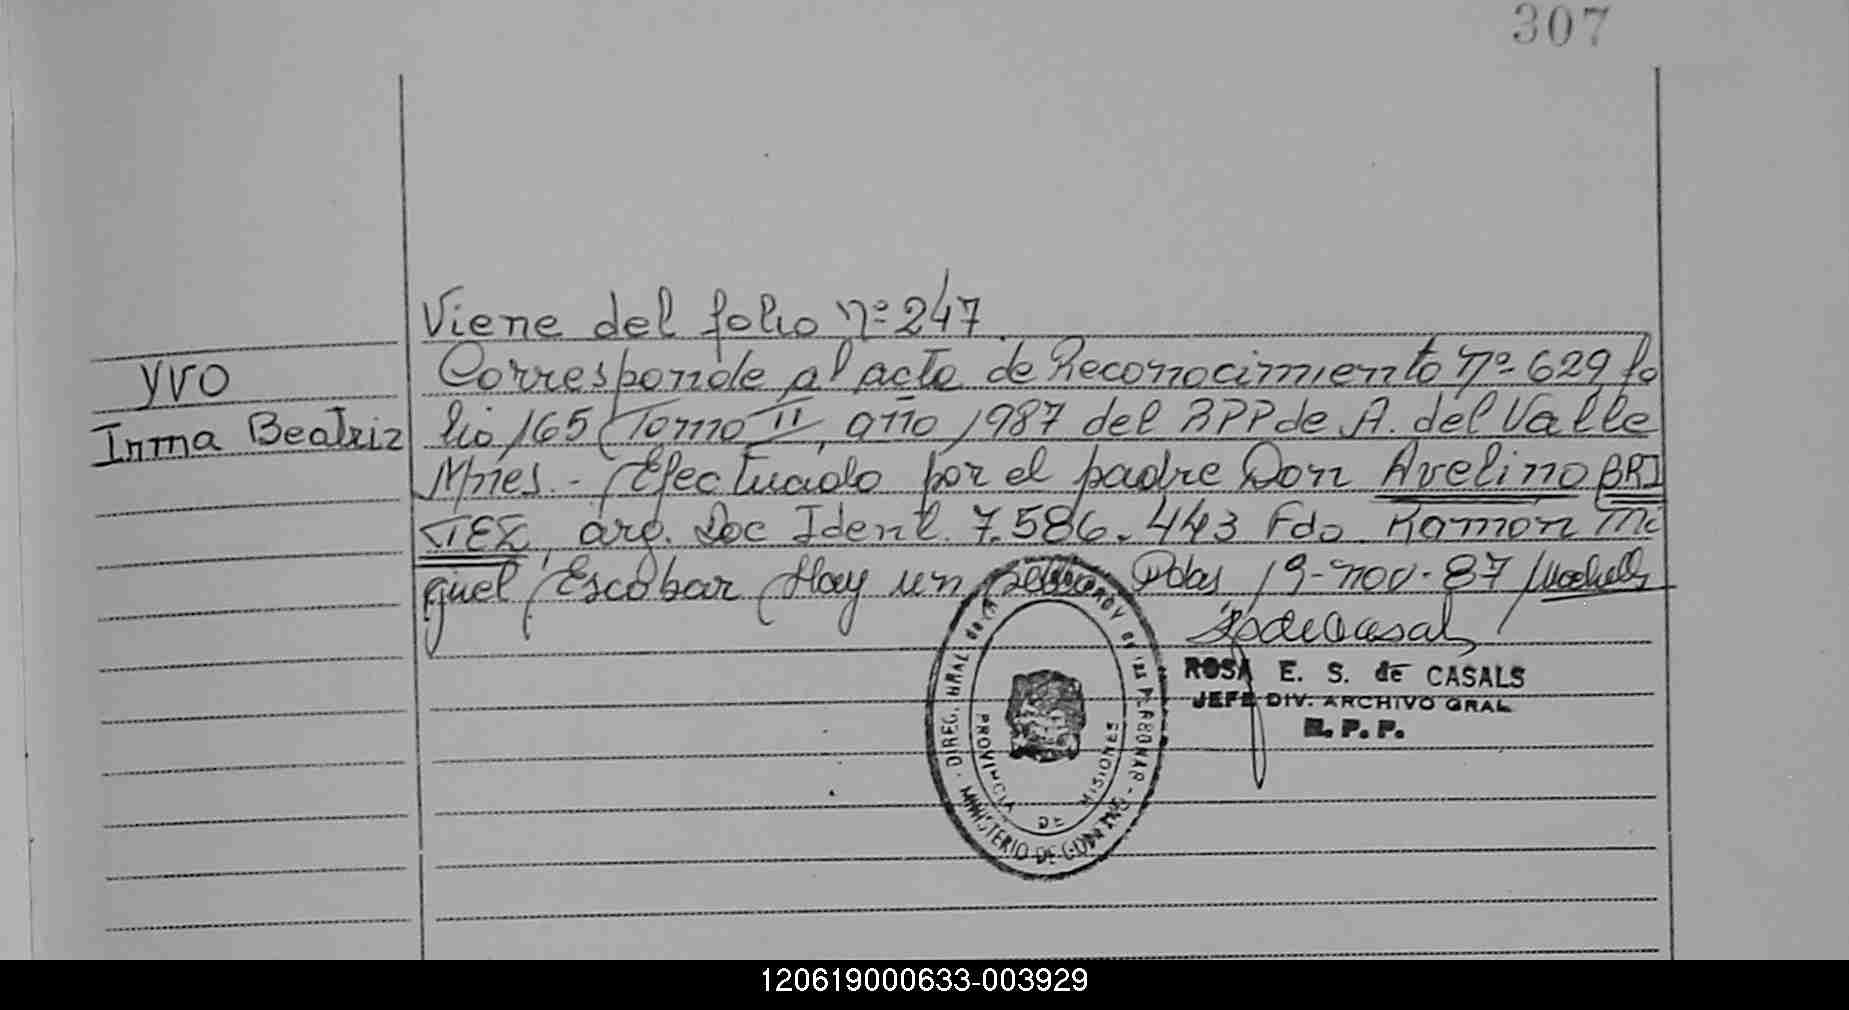 307
Viene del folio nº 247
YVO
Corresponde al acta de Reconocimiento nº 629 fo
Irma Beatriz
lio 165 Tomo II, año 1987 del RPP de A. del Valle
Mnes. - Efectuado por el padre Don Avelino BRI
TEZ, arg. Doc Ident. 7.586.443 Fdo. Ramon Mi
guel Escobar Hay un sello Pdas 19-nov-87
ROSA E. S. de CASALS
JEFE DIV. ARCHIVO GRAL
R. P. P.
DIREG. GRAL de
PROV de las PERSONAS
PROVINCIA DE MISIONES
MINISTERIO DE GOBIERNO
120619000633-003929